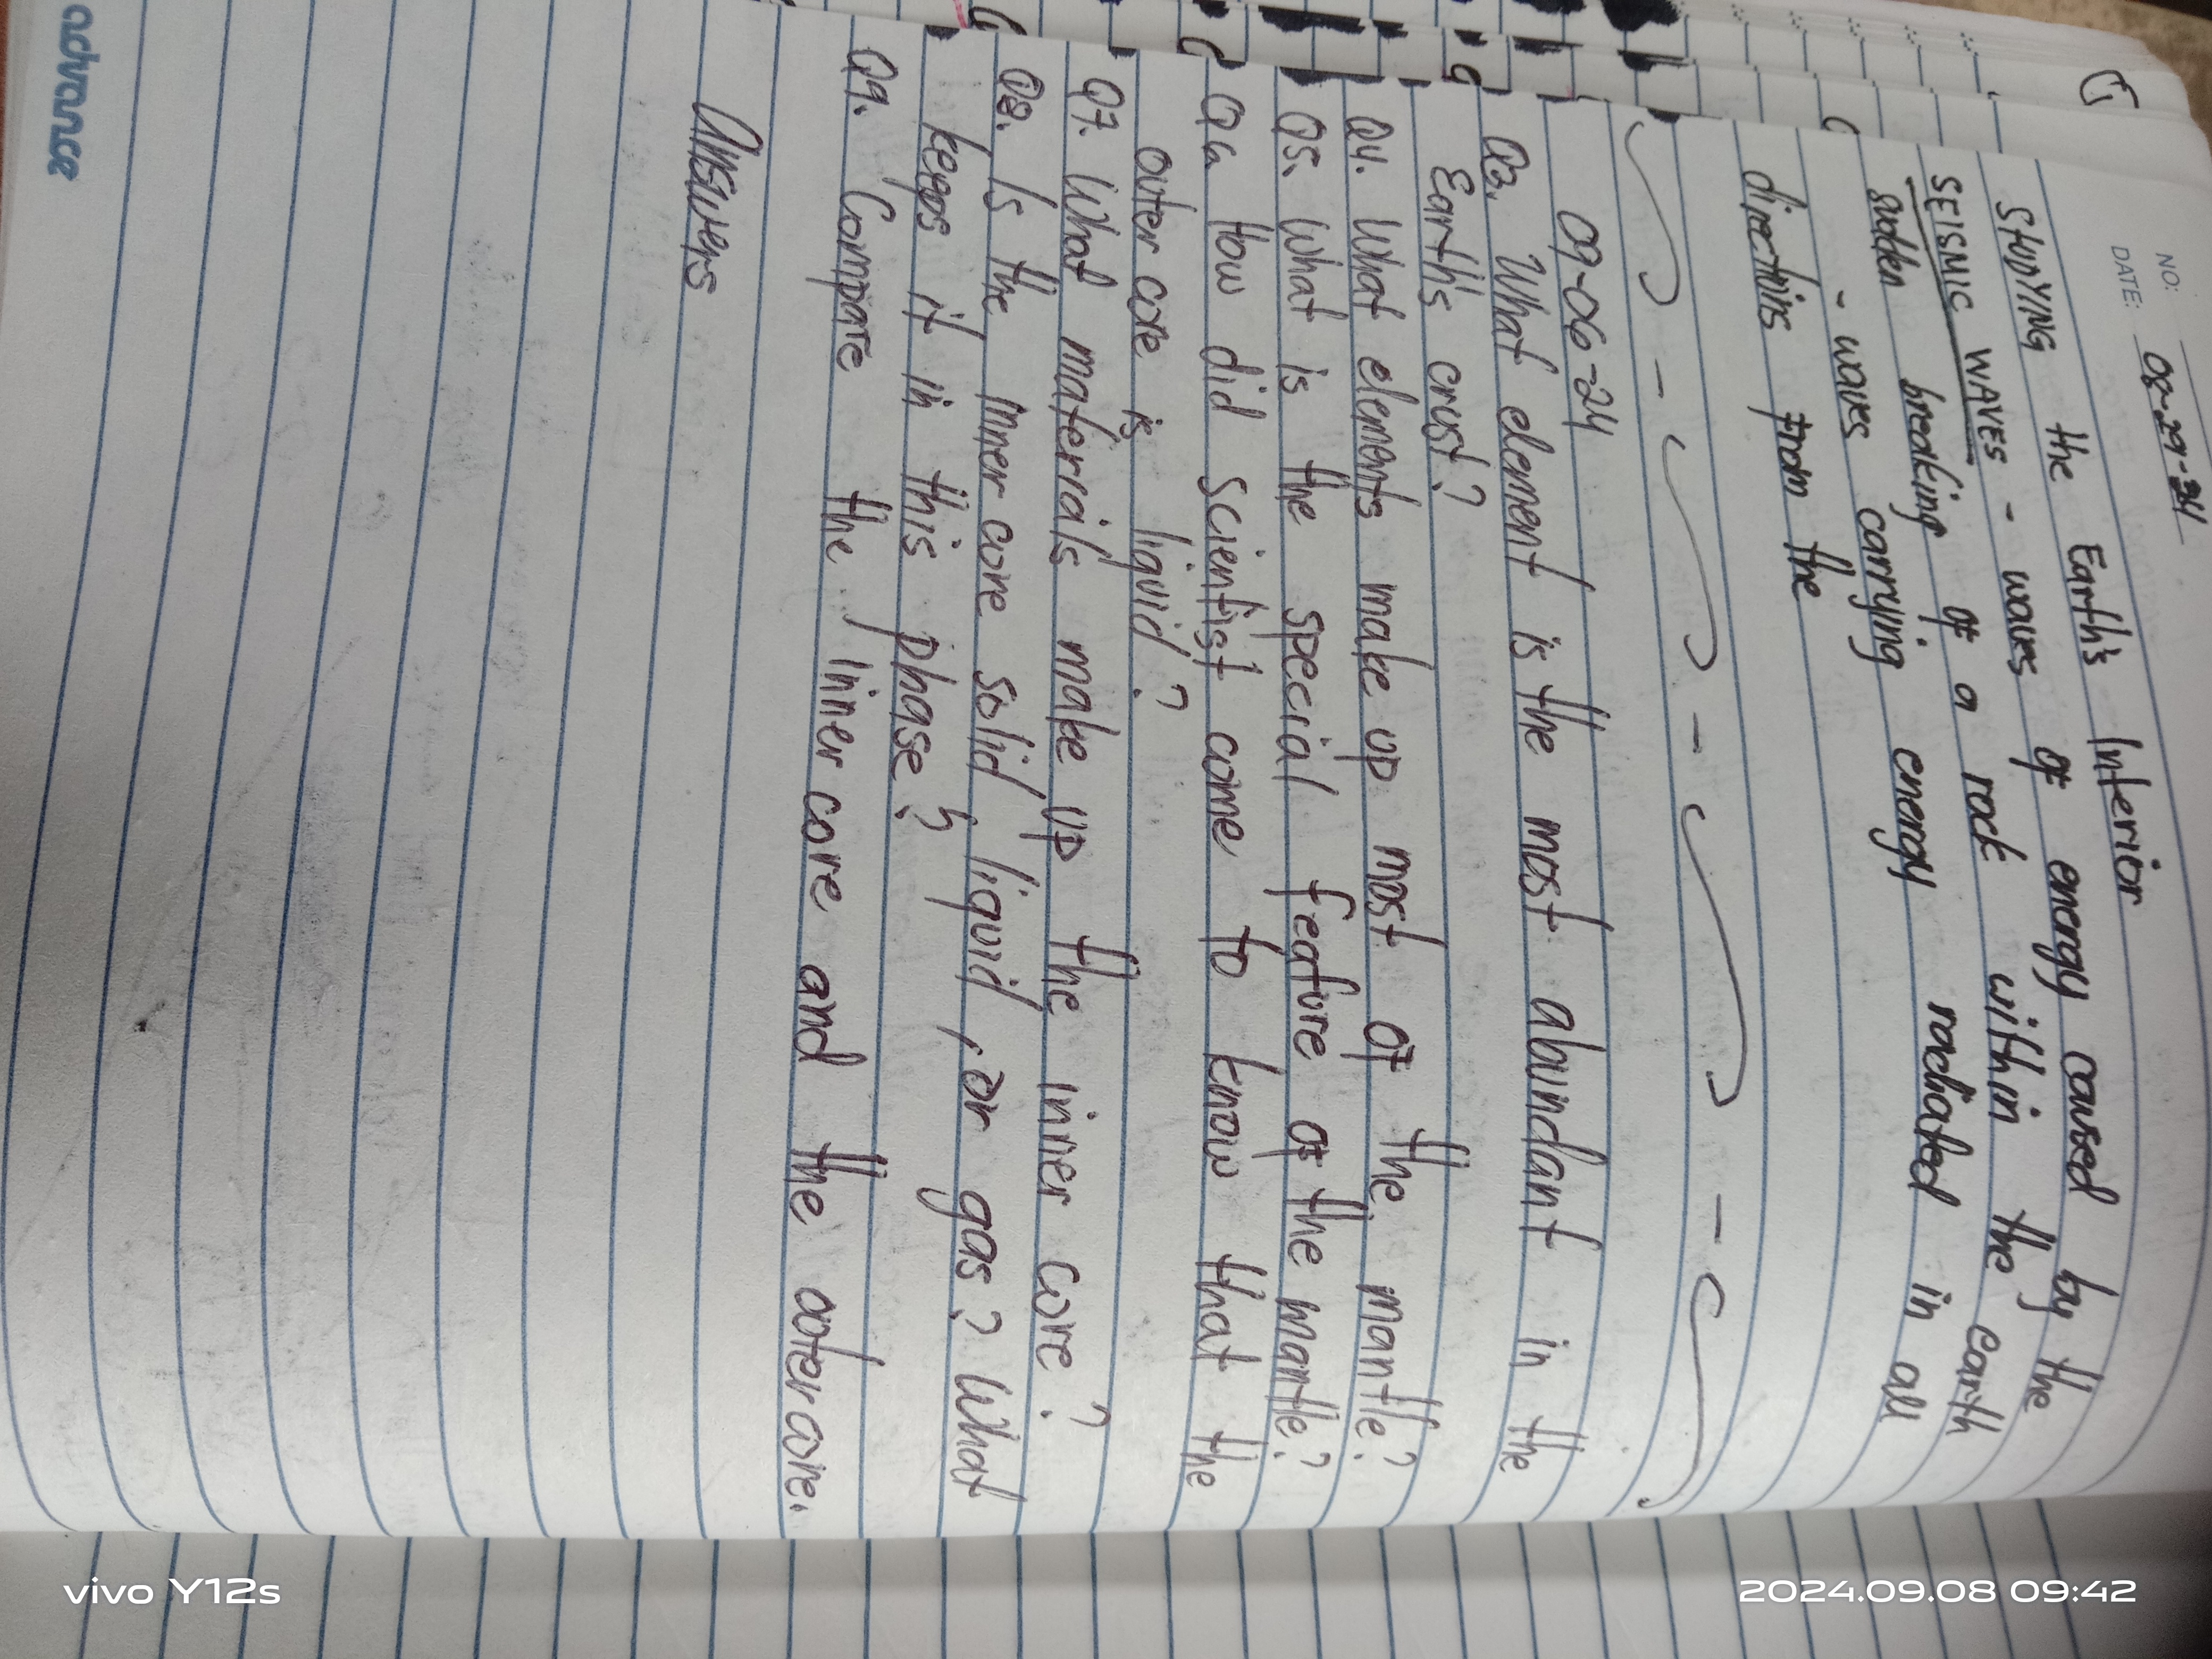 NO:
DATE: 08-29-24
STUDYING the Earth's Interior
SEISNIC WAVES - waves of energy caused by the
suden breaking of a rock within the earth
- waves carrying energy radiated in all
directhins from the
09-06-24
Q3. What element is the most abundant in the
Earth's crust?
Q4. What elements make up most of the mantle?
Q5. What is the special feature of the mantle?
Q6. How did Scientist come to know that the
outer core is liquid?
Q7. What materials make up the inner core?
Q8. Is the inner core solid, liquid, or gas? What
keeps it in this phase?
Q9. Compare the inner core and the outer core.
Answers
advance
vivo Y12s
2024.09.08 09:42